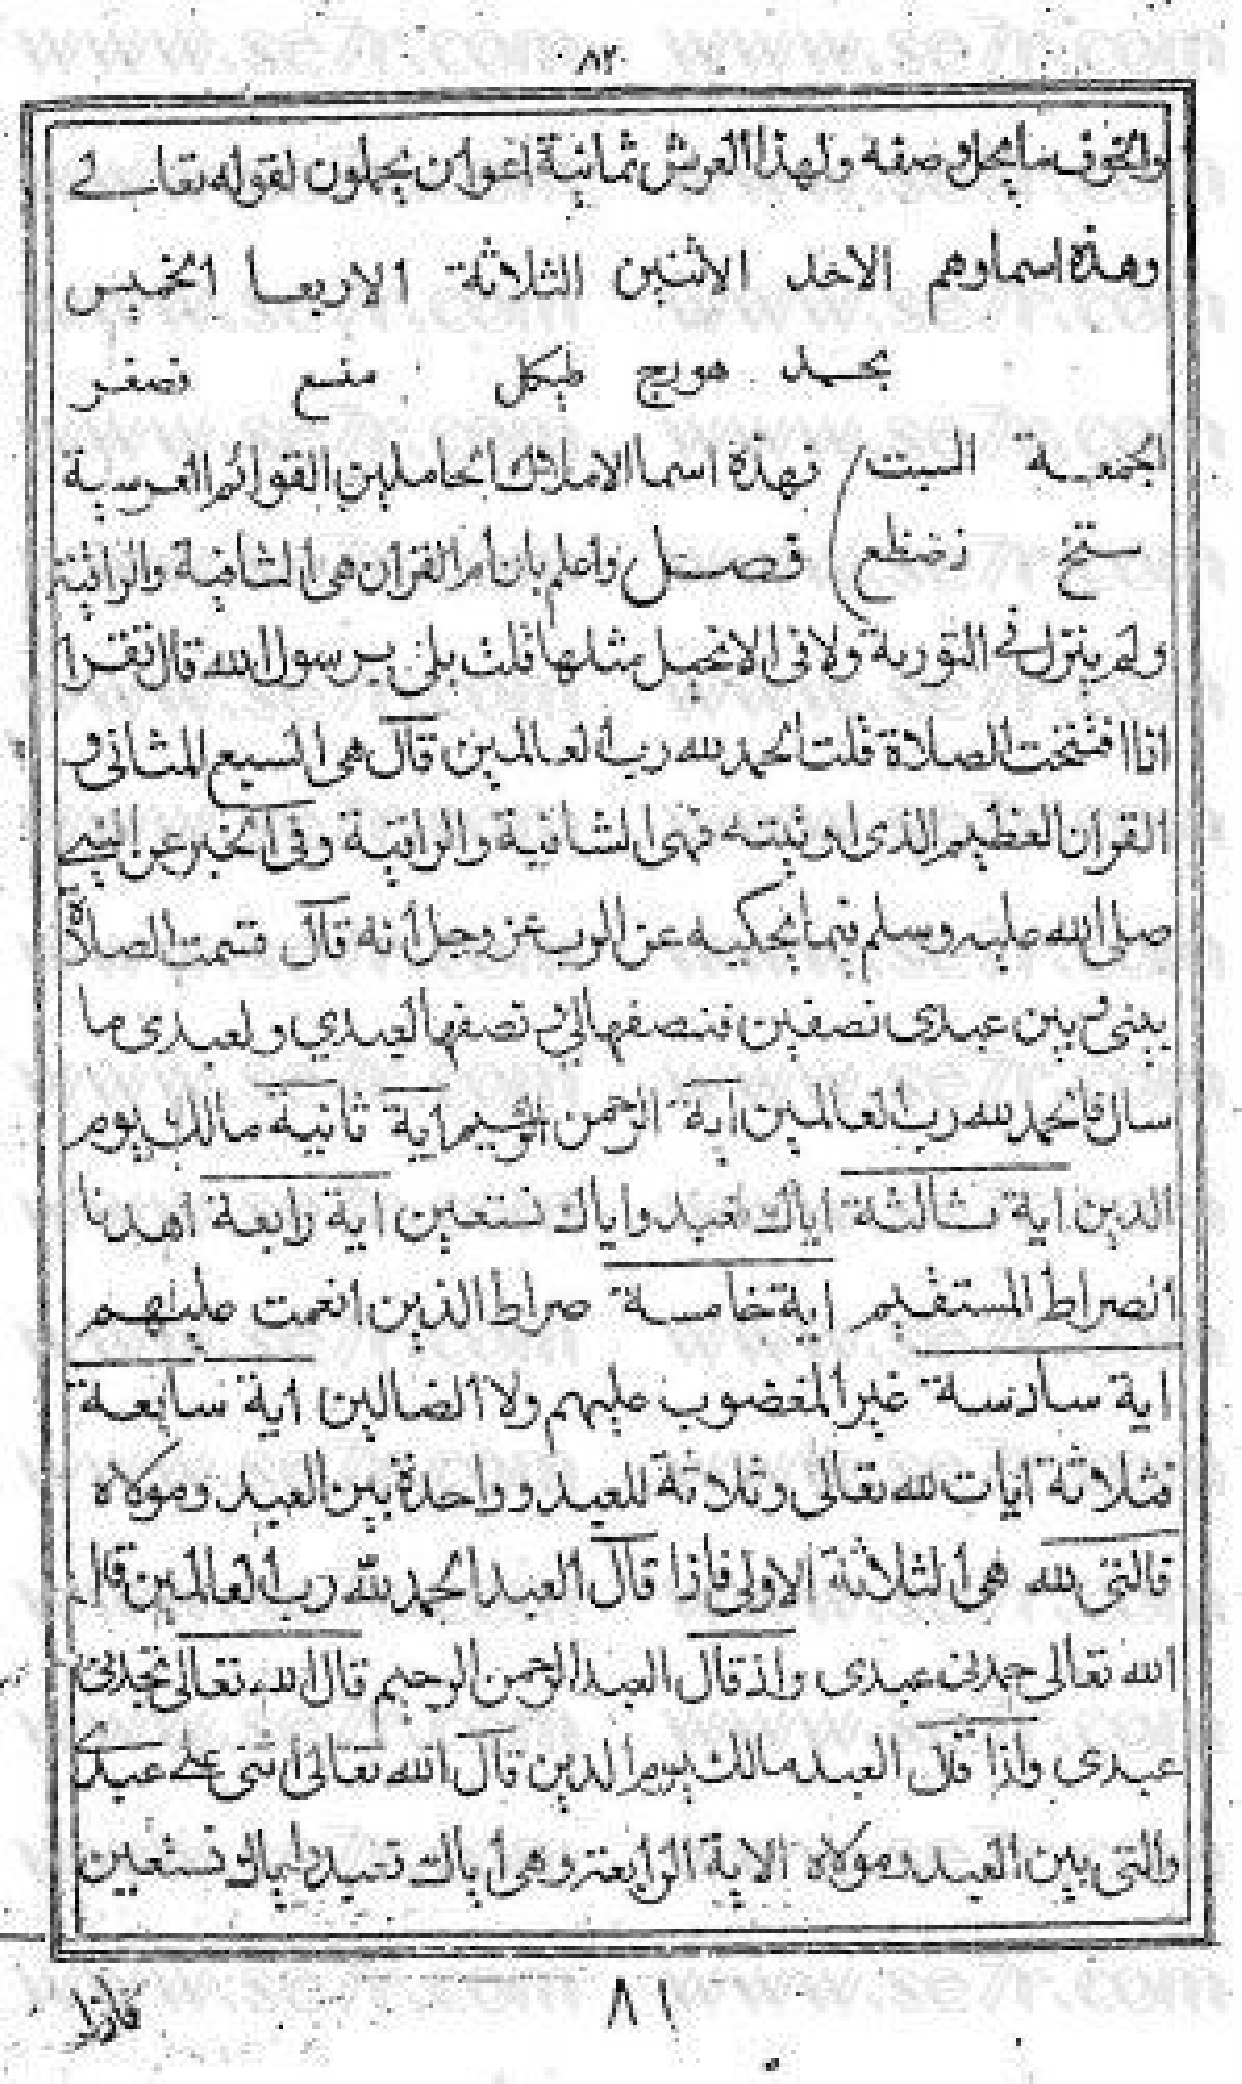 ٨٢
والخوف ما يجل وصفه ولهذا العرش ثمانية اعوان يحملون لقوله تعالى
وهذه اسماوهم الاحد الاثنين الثلاثة الاربعا الخميس
هورج طبكل منسع فصقر
الجمعة السبت نهذة اسما الاملاك الحاملين القوائم العرسية
ستخ ذضظع فصل واعلم بان ام القران هى الشافية والراقية
ولم ينزل فى التورية ولا فى الانجيل مثلها قلت بلى يرسول الله قال تقرا
اذا افتتحت الصلاة قلت الحمد لله رب العالمين قال هى السبع المثانى و
القران العظيم الذى اوتيته فهى الشافية والراقية وفى الخبر عن النبى
صلى الله عليه وسلم فيما يحكيه عن الرب عز وجل انه قال قسمت الصلاة
بينى وبين عبدى نصفين فنصفها لى ونصفها لعبدي ولعبدى ما
سال فالحمد لله رب العالمين اية الرحمن الرحيم اية ثانية مالك يوم
الدين اية ثالثة اياك نعبد واياك نستعين اية رابعة اهدنا
الصراط المستقيم اية خامسة صراط الذين انعمت عليهم
اية سادسة غير المغضوب عليهم ولا الضالين اية سابعة
فثلاثة ايات لله تعالى وثلاثة للعبد وواحدة بين العبد ومولاه
فالتى لله هى الثلاثة الاولى فاذا قال العبد الحمد لله رب العالمين قال
الله تعالى حمدنى عبدى واذ قال العبد الرحمن الرحيم قال الله تعالى مجدنى
عبدى واذا قال العبد مالك يوم الدين قال الله تعالى اثنى على عبدى
والتى بين العبد ومولاه الاية الرابعة وهى اياك نعبد واياك نستعين
فاذا
٨١
www.se7r.com